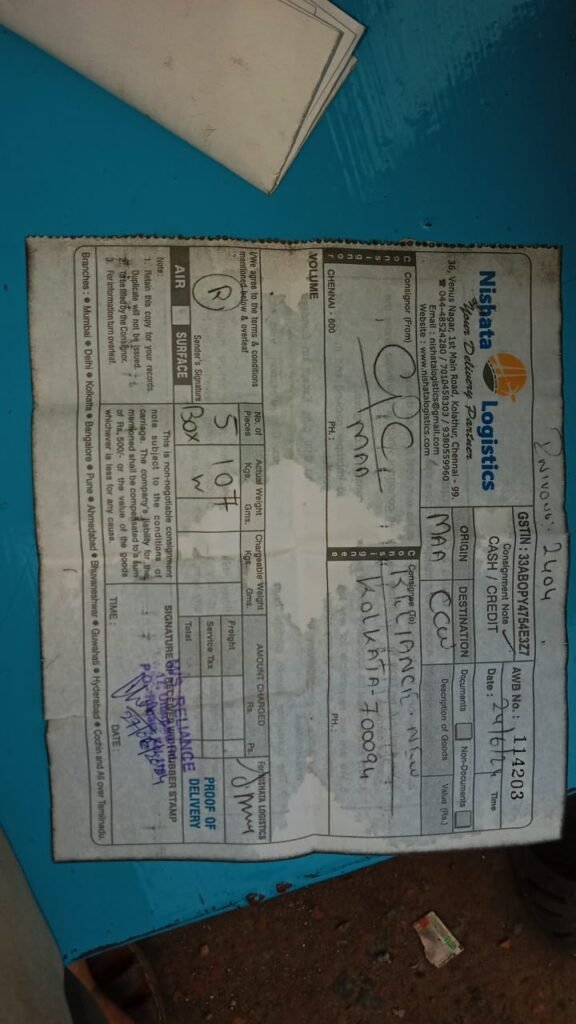 Nishata Logistics
Your Delivery Partner
36, Venus Nagar, 1st Main Road, Kolathur, Chennai - 99.
☎ 044-48524280 / 7010458303 / 9380559960
Email : nishatalogistics@gmail.com /
Website : www.nishatalogistics.com
2404
GSTIN : 33ABOPY4754E3Z7
Consignment Note
CASH / CREDIT
AWB No. : 114203
Date : 24/6/24
Time
ORIGIN
DESTINATION
Documents
Non-Documents
MAA
CCU
Description of Goods
Value (Rs.)
Consignor
Consignor (From)
CPCL
MAA
CHENNAI - 600
PH. :
Consignee
Consignee (To)
RELIANCE NEW
KOLKATA-700094
PH.
VOLUME
I/We agree to the terms & conditions
mentioned below & overleaf
Sender's Signature
No. of
Pieces
Actual Weight
Kgs. Gms.
Chargeable Weight
Kgs. Gms.
AMOUNT CHARGED
Rs. Ps.
For NISHATA LOGISTICS
5
BOX
107
W
Freight
Service Tax
Total
PROOF OF
DELIVERY
AIR
SURFACE
Note:
1. Retain this copy for your records.
Duplicate will not be issued.
2. To be filled by the Consignor.
3. For information turn overleaf.
This is non-negotiable consignment
note subject to the conditions of
carriage. The company's liability for the
mentioned shall be compensated to a sum
of Rs. 500/- or the value of the goods
whichever is less for any cause.
SIGNATURE OF RECEIVER WITH RUBBER STAMP
RELIANCE
TIME :
DATE :
Branches : ● Mumbai ● Delhi ● Kolkatta ● Bangalore ● Pune ● Ahmedabad ● Bhuvaneshwar ● Guwahati ● Hyderabad ● Cochin and All over Tamilnadu.